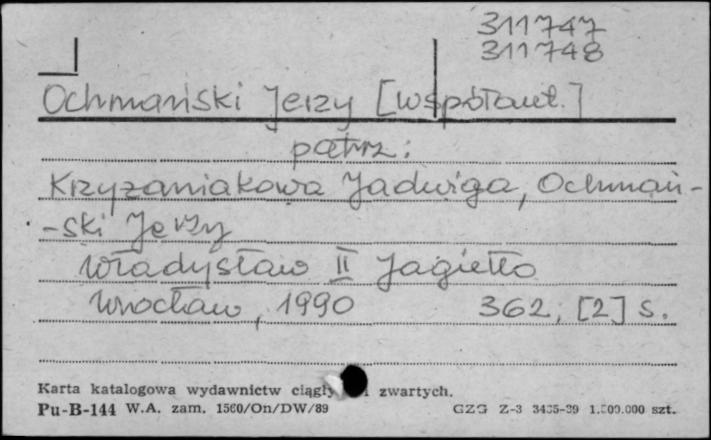 311747
311748
Ochmański Jerzy [współaut.]
patrz:
Krzyżaniakowa Jadwiga, Ochmań-
-ski Jerzy
Władysław II Jagiełło
Wrocław, 1990 362, [2] s.
Karta katalogowa wydawnictw i zwartych.
Pu-B-144 W.A. zam. 1560/On/DW/89 GZG Z-3 szt.